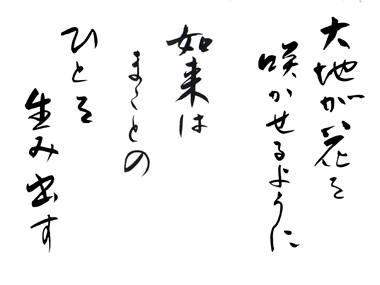 大地が花を
咲かせるように
如来は
まことの
ひとを
生み出す